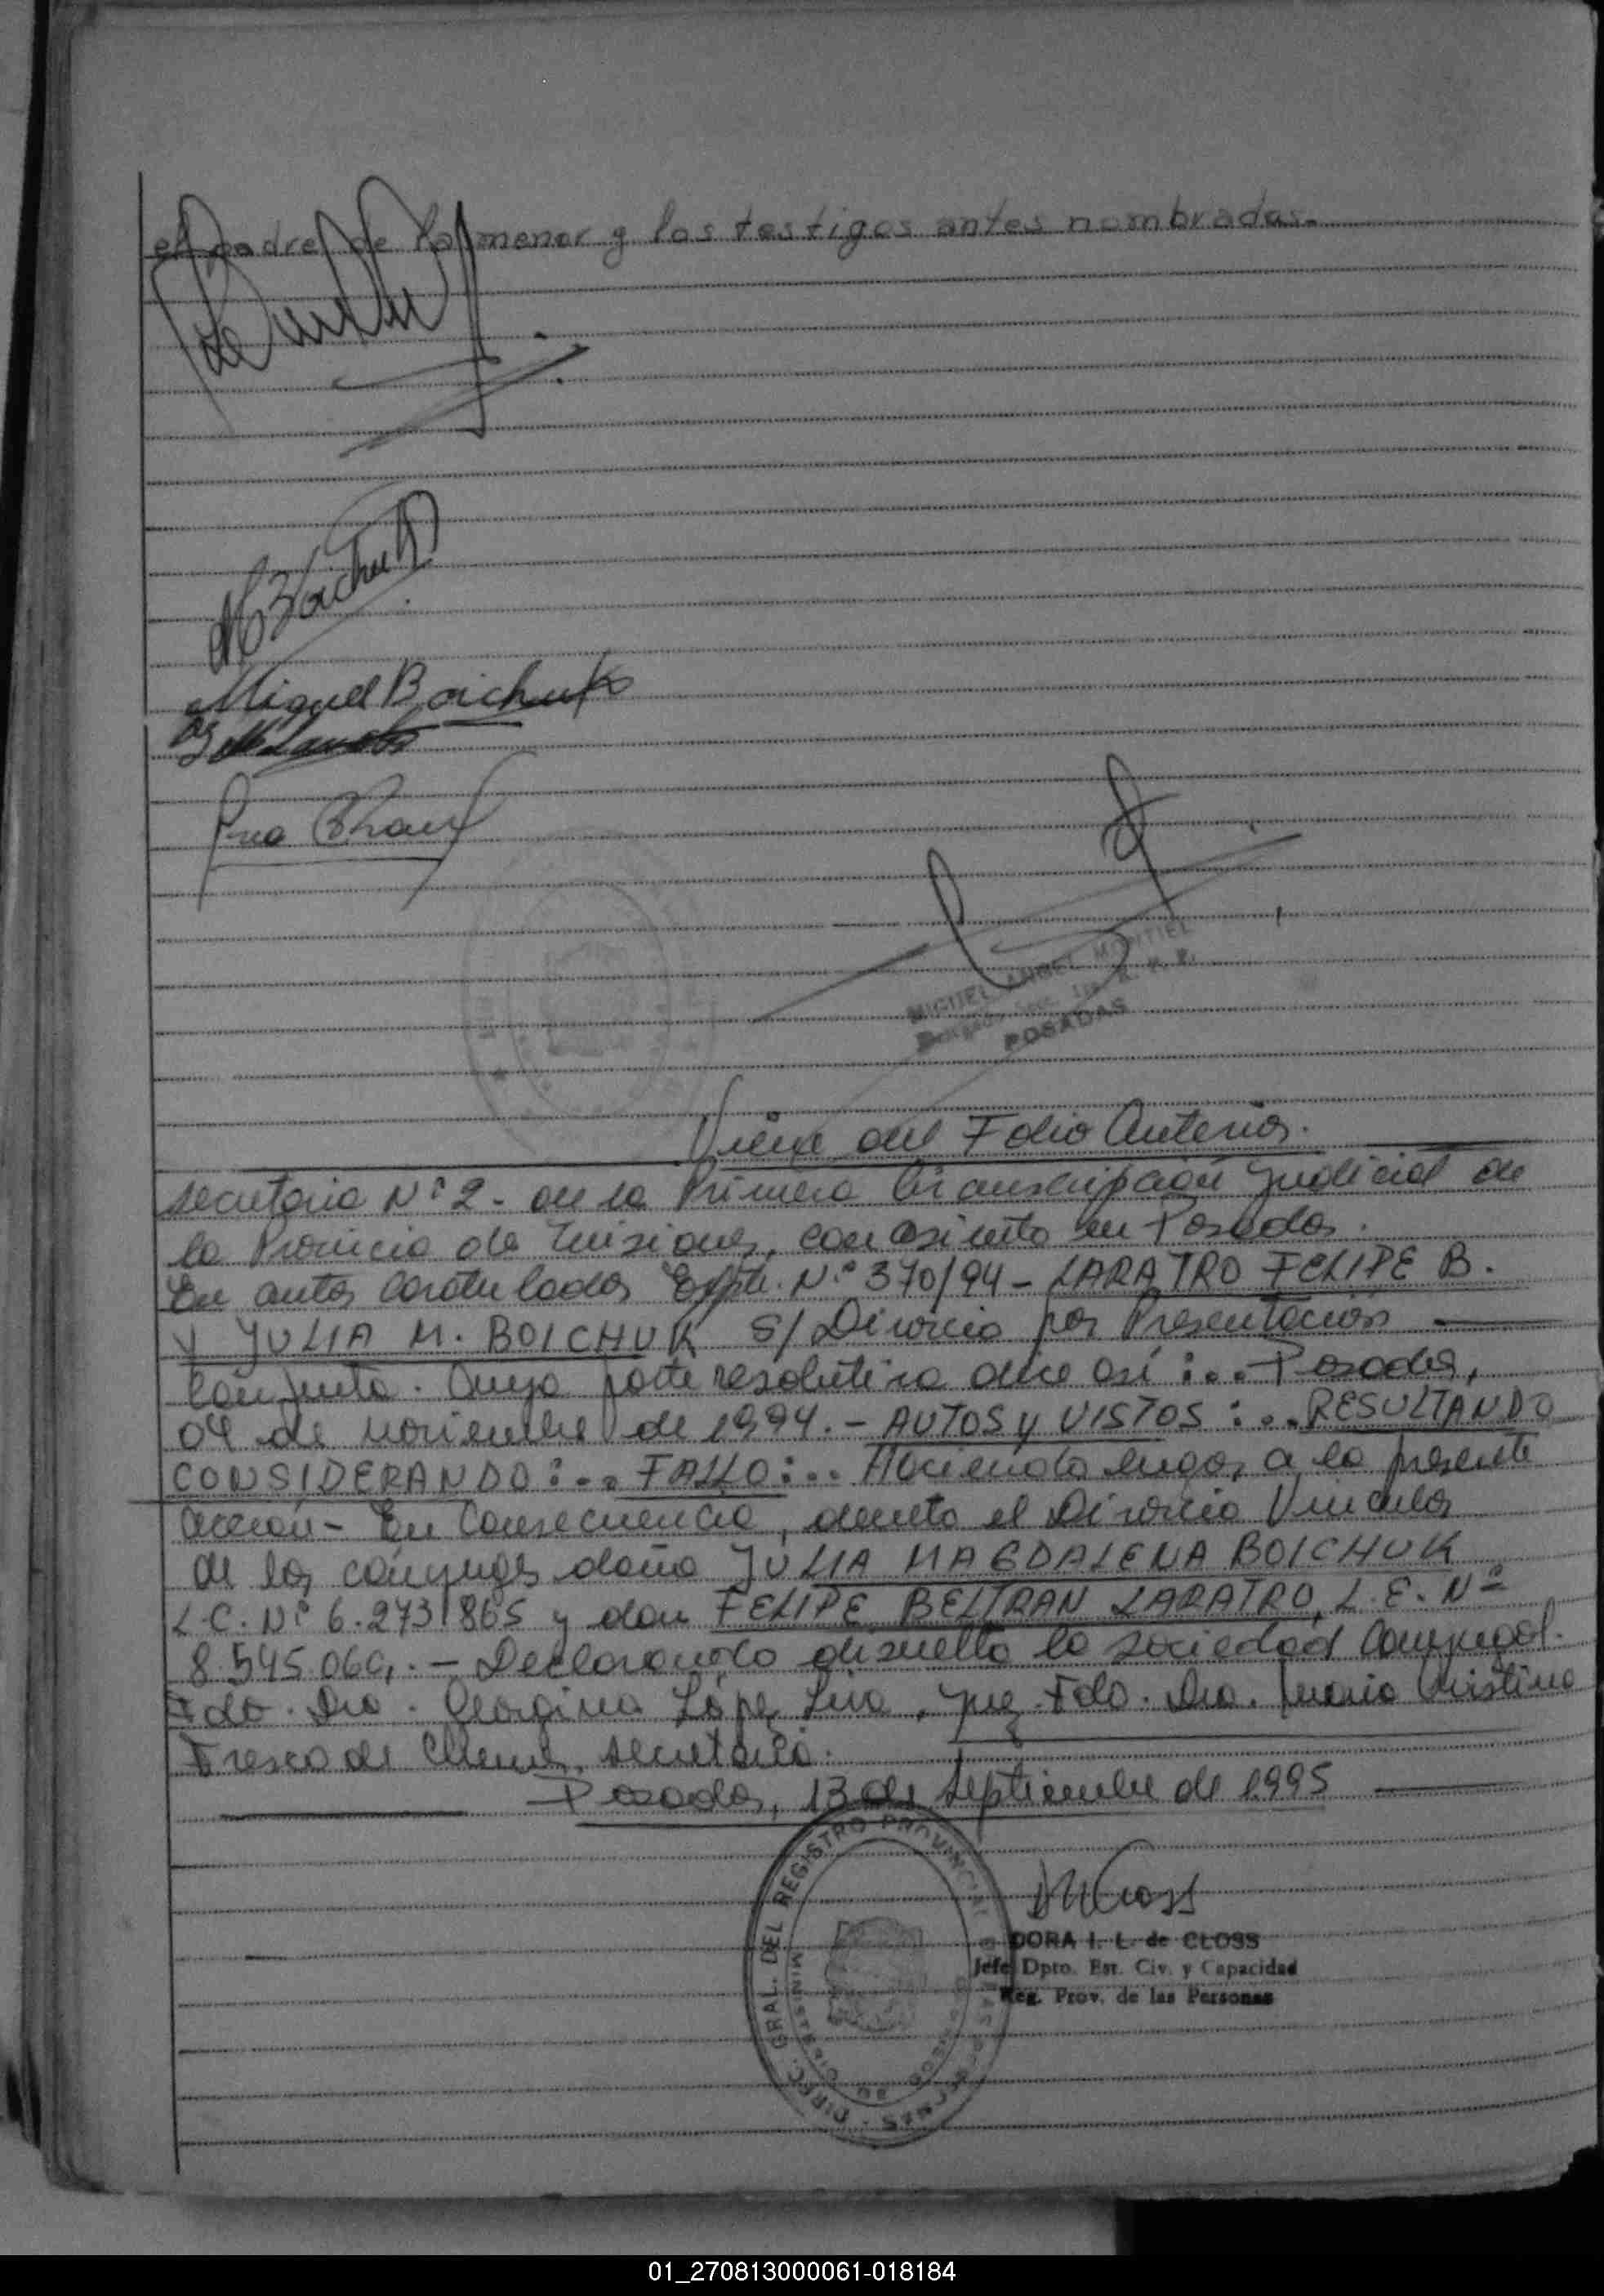 el padre de la menor y los testigos antes nombrados.-
M Boichuk
Miguel Boichuk
MIGUEL ANGEL MONTIEL
POSADAS
Viene del Folio Anterior.
secretaria Nº 2 - de la Primera Circunscripción Judicial de
la Provincia de Misiones, con asiento en Posadas.
En autos caratulados Expte. Nº 370/94 - LARATRO FELIPE B.
y JULIA M. BOICHUK S/ Divorcio por Presentación
Conjunta. Cuya parte resolutiva dice así:... Posadas,
04 de noviembre de 1994.- AUTOS y VISTOS:... RESULTANDO
CONSIDERANDO:... FALLO:... Haciendo lugar a la presente
acción - En Consecuencia, decreto el Divorcio Vincular
de los cónyuges doña JULIA MAGDALENA BOICHUK
L.C. Nº 6.273.865 y don FELIPE BELTRAN LARATRO, L.E. Nº
8.545.060,.- Declarando disuelta la sociedad Conyugal.
Fdo. Dra. Georgina López Liva, Juez. Fdo. Dra. María Cristina
Fresco de, secretaria.
Posadas, 13 de septiembre de 1995
DIREC. GRAL. DEL REGISTRO PROVINCIAL DE LAS PERSONAS
DORA I. L. de CLOSS
Jefe Dpto. Est. Civ. y Capacidad
Reg. Prov. de las Personas
01_270813000061-018184